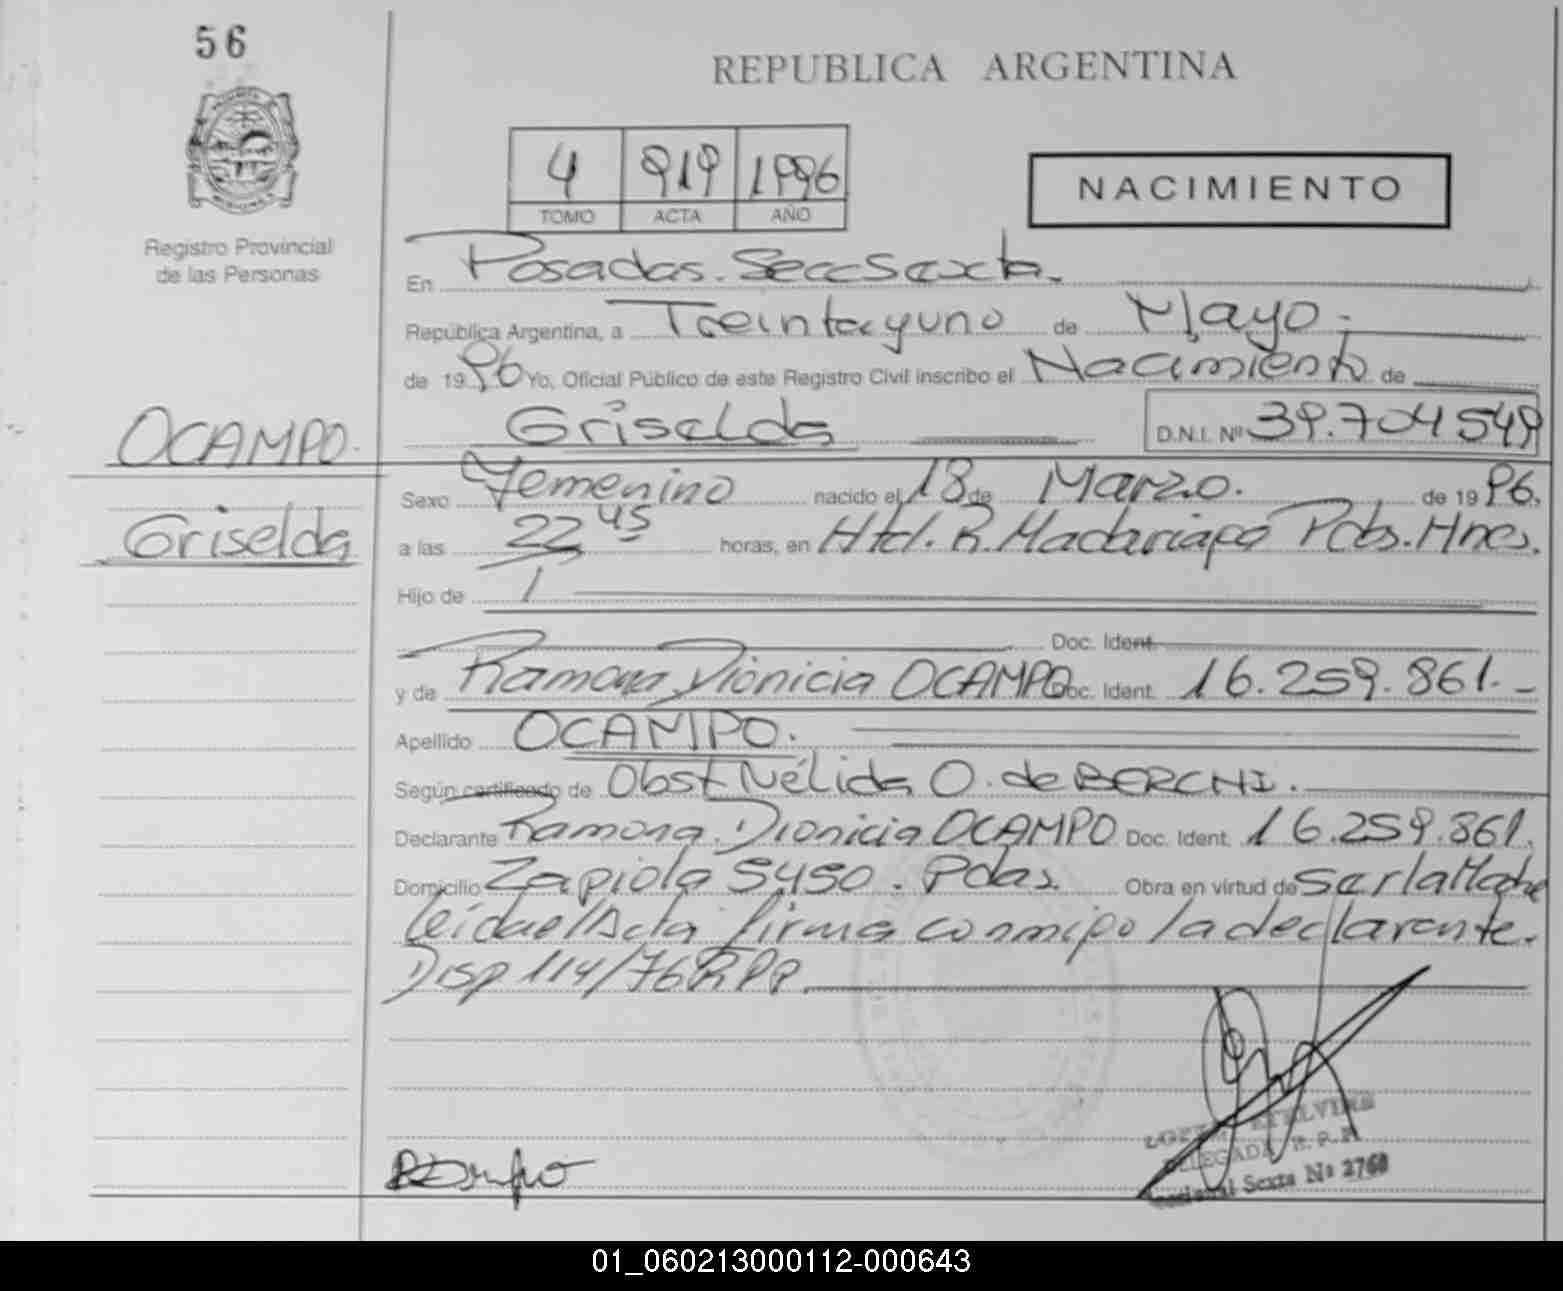 56
REPUBLICA ARGENTINA
4 919 1996
TOMO ACTA AÑO
NACIMIENTO
Registro Provincial
de las Personas
En Posadas. Secc Sexta.
República Argentina, a Treinta y uno de Mayo.
de 1996 Yo, Oficial Público de este Registro Civil inscribo el Nacimiento de
OCAMPO. Griselda D.N.I. Nº 39.704549
Sexo Femenino nacido el 18 de Marzo. de 1996.
Griselda a las 22 45 horas, en Htal. R. Madariaga Pdas. Mnes.
Hijo de
Doc. Ident.
y de Ramona Dionicia OCAMPO Doc. Ident. 16.259.861.-
Apellido OCAMPO.
Según certificado de Obst Nélida O. de BERCHI.
Declarante Ramona Dionicia OCAMPO Doc. Ident. 16.259.861.
Domicilio Zapiola 5450. Pdas. Obra en virtud de ser la Madre
leída el Acta firma conmigo la declarante.
Disp 114/76 RPP.
ETELVINA
DELEGADA R. P. P.
Seccional Sexta Nº 2760
01_060213000112-000643